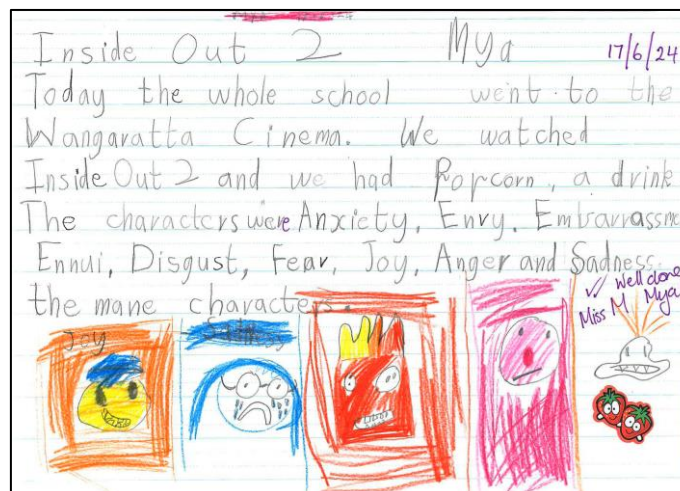 Inside Out 2 Mya 17/6/24
Today the whole school went to the
Wangaratta Cinema. We watched
Inside Out 2 and we had Porcorn, a drink
The characters were Anxiety, Envy, Embarrassme
Ennui, Disgust, Fear, Joy, Anger and Sadness.
the mane characters.
✓ Well done
Miss M Mya
Joy